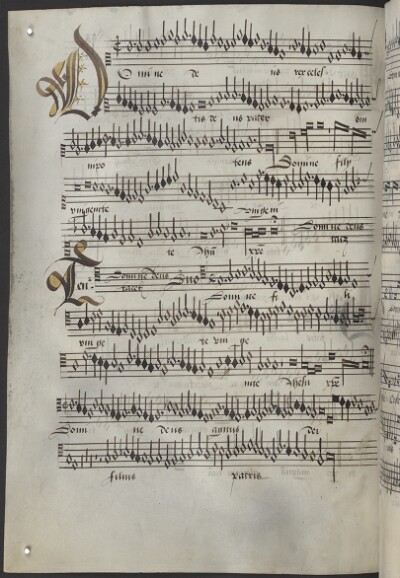 Domine de us rex celes
tis de us pater om
nipo tens Domine fily
vnigenite vnigeni
te Jhu xpe Domine deus
tacet
Ten- Domine deus
tacet Domine fi li
vnige ni
nite Jhesu xpe
Domi ne deus agnus dei
filius patris